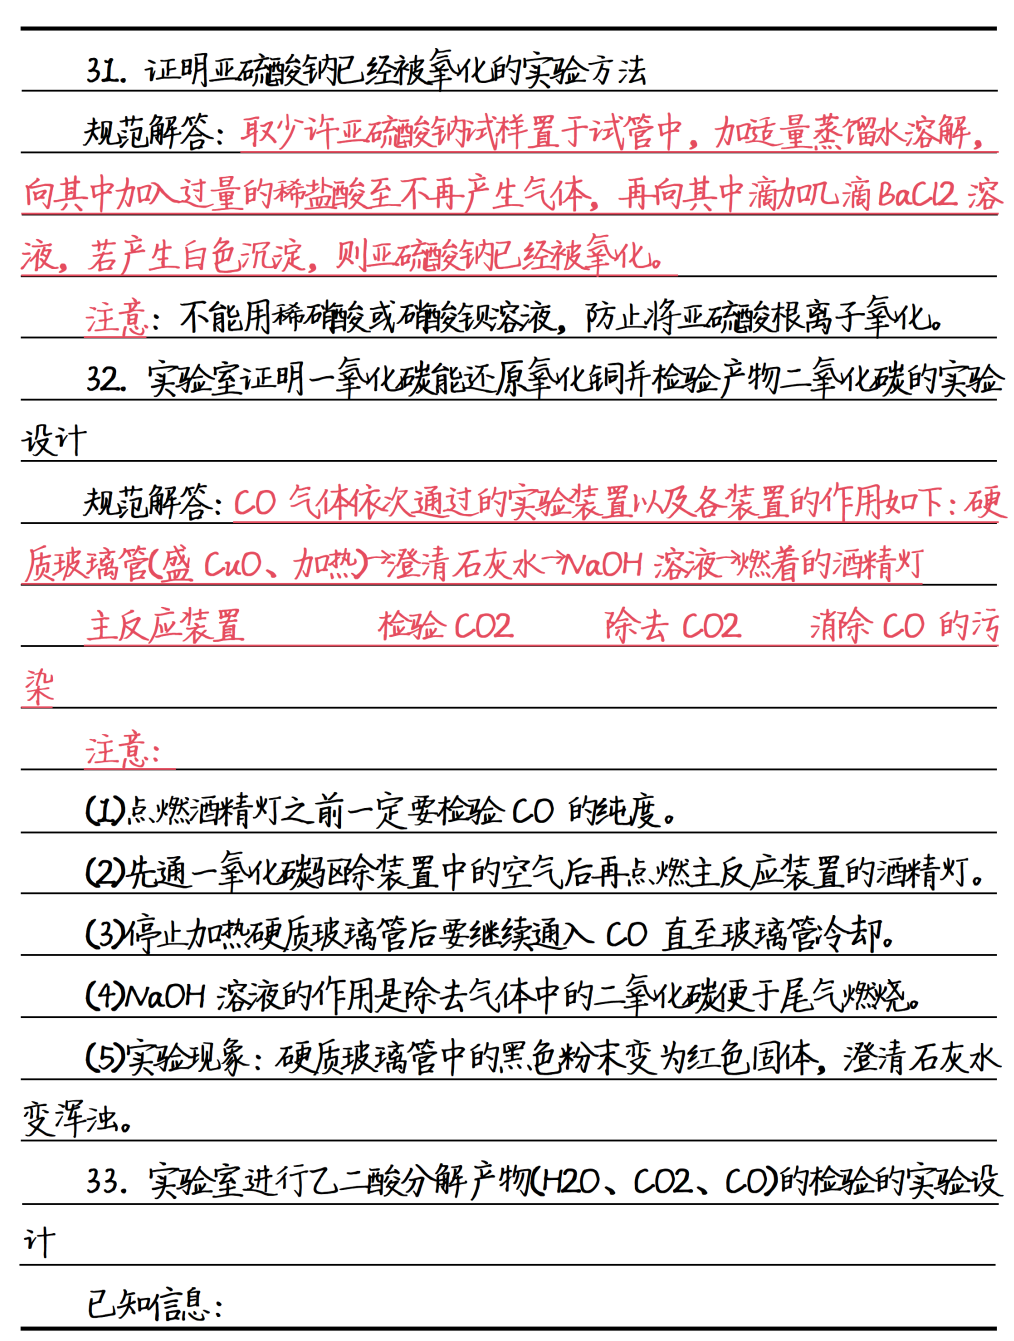 31. 证明亚硫酸钠已经被氧化的实验方法
规范解答：取少许亚硫酸钠试样置于试管中，加适量蒸馏水溶解，
向其中加入过量的稀盐酸至不再产生气体，再向其中滴加几滴BaCl2 溶
液，若产生白色沉淀，则亚硫酸钠已经被氧化。
注意：不能用稀硝酸或硝酸钡溶液，防止将亚硫酸根离子氧化。
32. 实验室证明一氧化碳能还原氧化铜并检验产物二氧化碳的实验
设计
规范解答：CO 气体依次通过的实验装置以及各装置的作用如下：硬
质玻璃管(盛 CuO、加热)→澄清石灰水→NaOH 溶液→燃着的酒精灯
主反应装置 检验 CO2 除去 CO2 消除 CO 的污
染
注意：
(1)点燃酒精灯之前一定要检验 CO 的纯度。
(2)先通一氧化碳驱除装置中的空气后再点燃主反应装置的酒精灯。
(3)停止加热硬质玻璃管后要继续通入 CO 直至玻璃管冷却。
(4)NaOH 溶液的作用是除去气体中的二氧化碳便于尾气燃烧。
(5)实验现象：硬质玻璃管中的黑色粉末变为红色固体，澄清石灰水
变浑浊。
33. 实验室进行乙二酸分解产物(H2O、CO2、CO)的检验的实验设
计
已知信息：